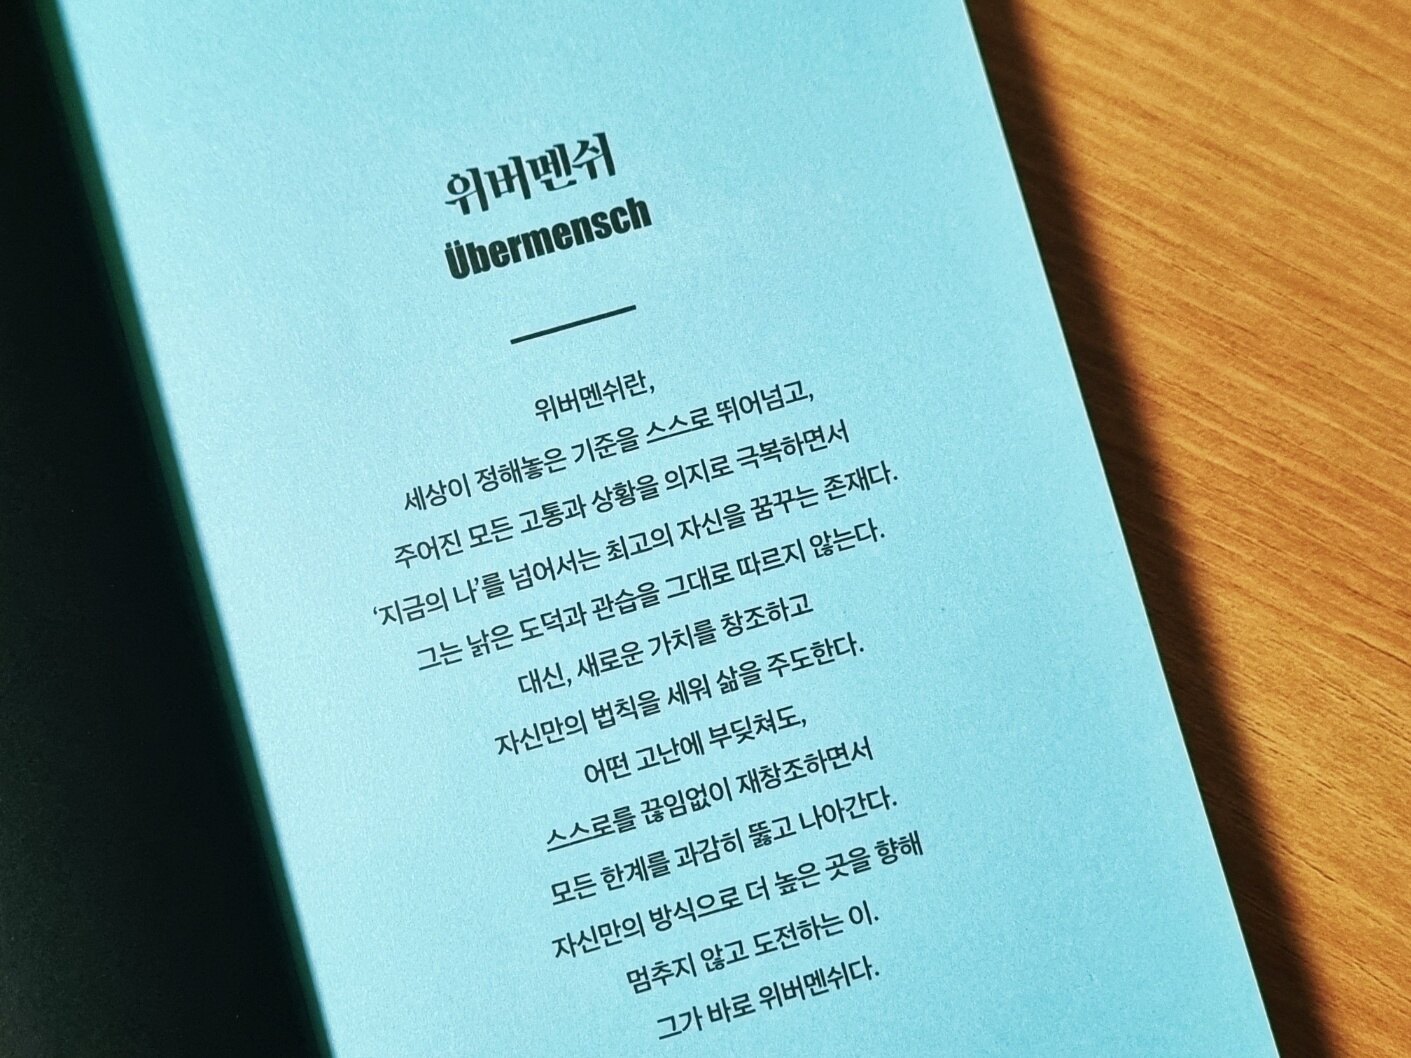 위버멘쉬
Übermensch
위버멘쉬란,
세상이 정해놓은 기준을 스스로 뛰어넘고,
주어진 모든 고통과 상황을 의지로 극복하면서
‘지금의 나’를 넘어서는 최고의 자신을 꿈꾸는 존재다.
그는 낡은 도덕과 관습을 그대로 따르지 않는다.
대신, 새로운 가치를 창조하고
자신만의 법칙을 세워 삶을 주도한다.
어떤 고난에 부딪쳐도,
스스로를 끊임없이 재창조하면서
모든 한계를 과감히 뚫고 나아간다.
자신만의 방식으로 더 높은 곳을 향해
멈추지 않고 도전하는 이.
그가 바로 위버멘쉬다.